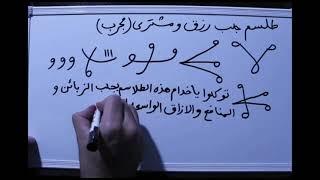 طلسم جلب رزق و مشتری (مجرب)
ااا ووو
توکلوا یاخدام هذه الطلاسم بجلب الزبائن و
المنافع والارزاق الواسعة